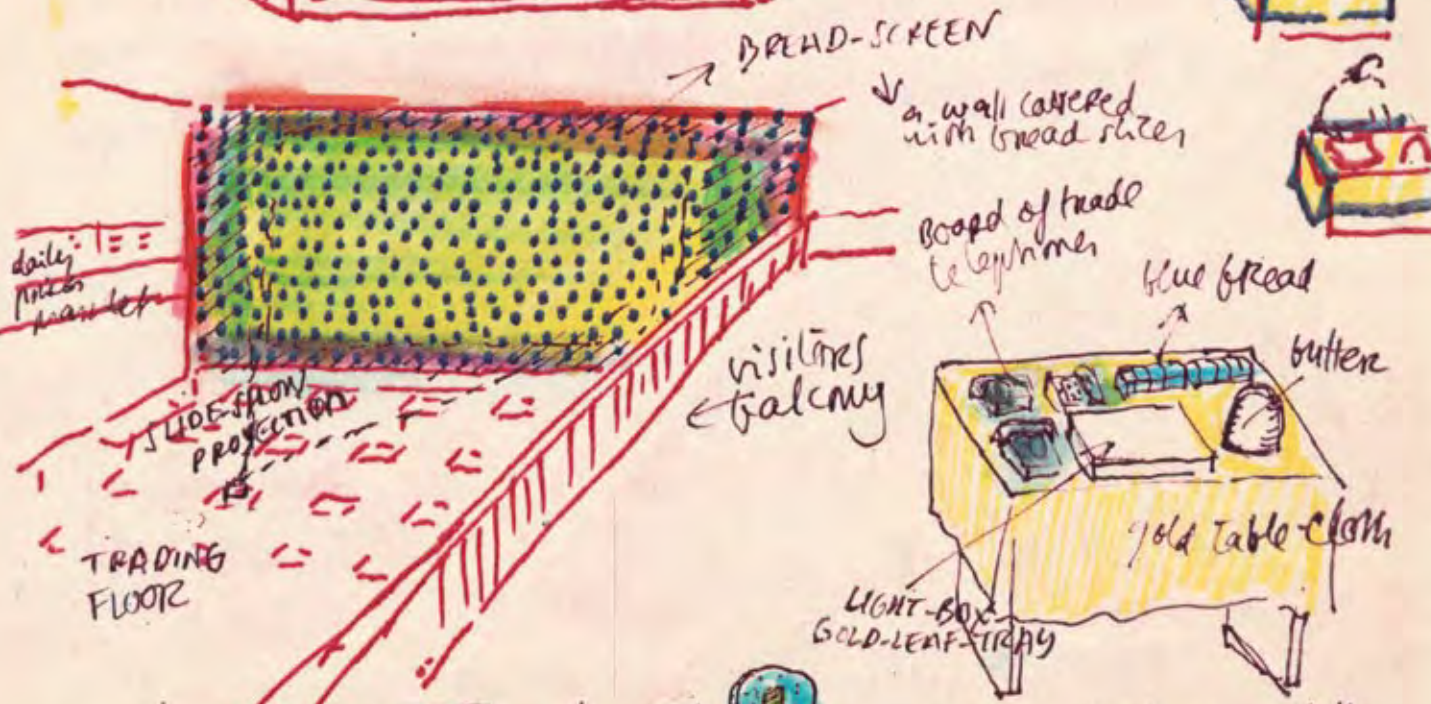 BREAD-SCREEN
a wall covered
with bread slices
Board of trade
telephones
blue bread
butter
daily
prices
market
visitors
balcony
SLIDE-SHOW
PROJECTION
TRADING
FLOOR
gold table-cloth
LIGHT-BOX-
GOLD-LEAF-TRAY